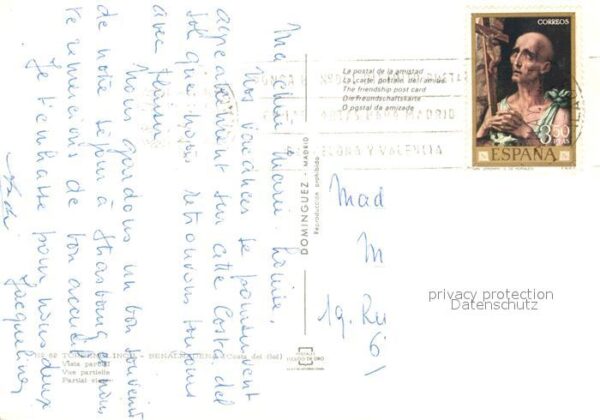 Ma chère Marie-Louise,
Nos vacances se poursuivent
agréablement sur cette Costa del
Sol que nous retrouvons toujours
avec plaisir.
Nous gardons un bon souvenir
de notre séjour à Strasbourg et nous
te remercions de ton accueil.
Je t'embrasse pour nous deux
Jacqueline
CORREOS
3,50
PTAS
ESPAÑA
La postal de la amistad
La carte postale de l'amitié
The friendship post card
Die Freundschaftskarte
O postal da amizade
MADRID
Y VALENCIA
DOMINGUEZ - MADRID
Reproducción prohibida
Mad
M
19. Ru
6
privacy protection
Datenschutz
TORREMOLINOS - BENALMADENA (Costa del Sol)
Vista parcial
Vue partielle
Partial view